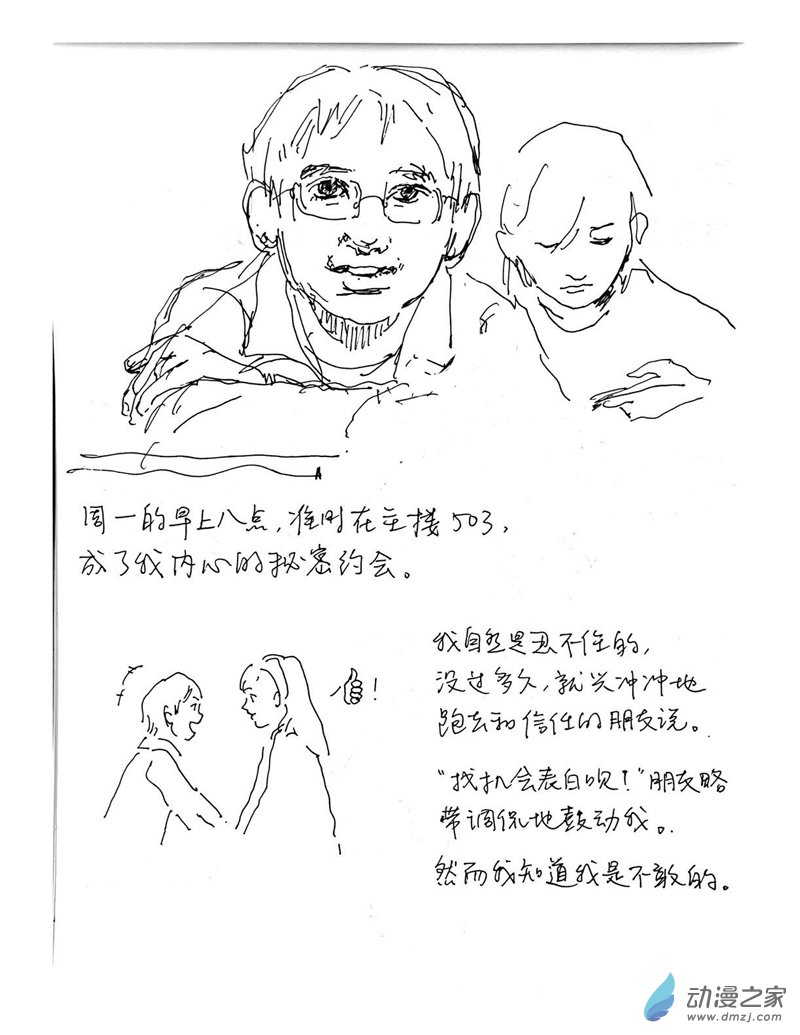 周一的早上八点，准时在主楼503，
成了我内心的秘密约会。
！
我自然是忍不住的，
没过多久，就兴冲冲地
跑去和信任的朋友说。
“找机会表白呗！”朋友略
带调侃地鼓动我。
然而我知道我是不敢的。
动漫之家
www.dmzj.com